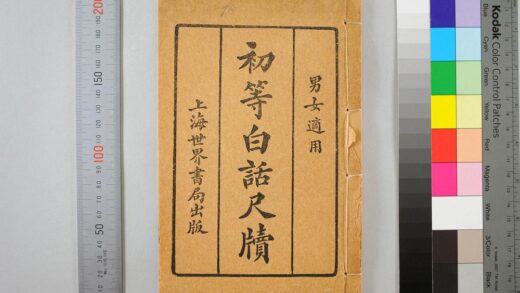 男女適用
初等白話尺牘
上海世界書局出版
200
100
50
Kodak Color Control Patches
Blue
Cyan
Green
Yellow
Red
Magenta
White
3/Color
Black